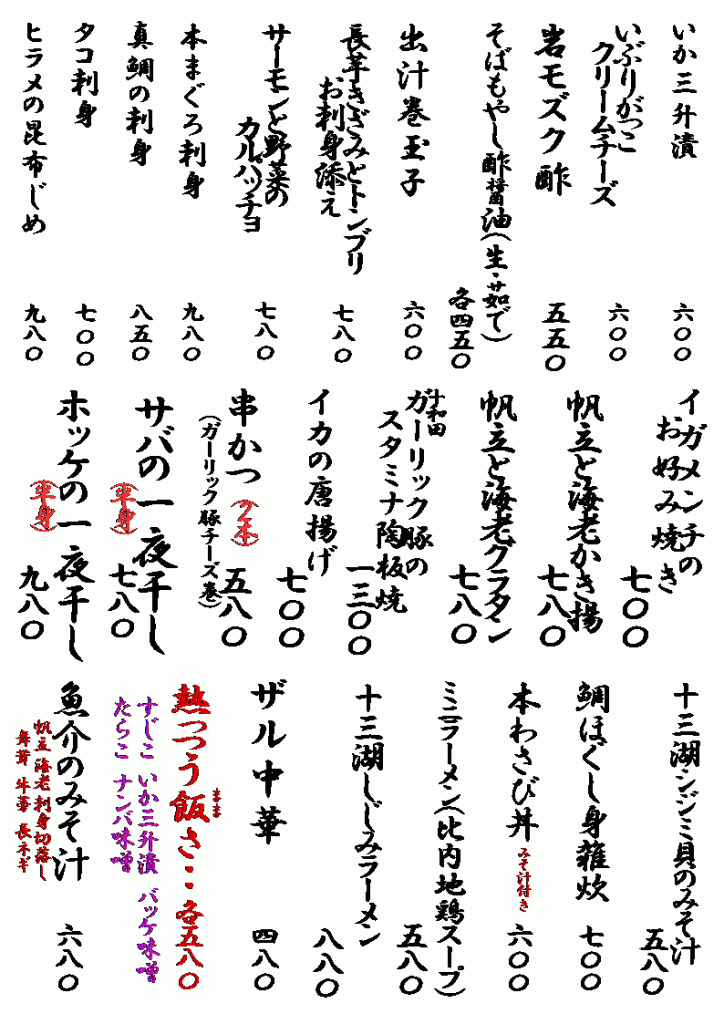 いか三升漬
六〇〇
いぶりがっこ
クリームチーズ
六〇〇
岩モズク酢
五五〇
そばもやし酢醤油(生・茹で)
各四五〇
出汁巻玉子
六〇〇
長芋きざみとトンブリ
お刺身添え
七八〇
サーモンと野菜の
カルパッチョ
七八〇
本まぐろ刺身
九八〇
真鯛の刺身
八五〇
タコ刺身
七〇〇
ヒラメの昆布じめ
九八〇
イガメンチの
お好み焼き
七〇〇
帆立と海老かき揚
七八〇
帆立と海老グラタン
七八〇
十和田
ガーリック豚の
スタミナ陶板焼
一三〇〇
イカの唐揚げ
七〇〇
串かつ(2本)
(ガーリック豚チーズ巻)
五八〇
サバの一夜干し
(半身)
七八〇
ホッケの一夜干し
(半身)
九八〇
十三湖シジミ貝のみそ汁
五八〇
鯛ほぐし身雑炊
七〇〇
本わさび丼 みそ汁付き
六〇〇
ミニラーメン(比内地鶏スープ)
五八〇
十三湖しじみラーメン
八八〇
ザル中華
四八〇
熱っつう飯さ・・各五八〇
まま
すじこ いか三升漬 バッケ味噌
たらこ ナンバ味噌
魚介のみそ汁
帆立 海老 刺身切落し
舞茸 牛蒡 長ネギ
六八〇